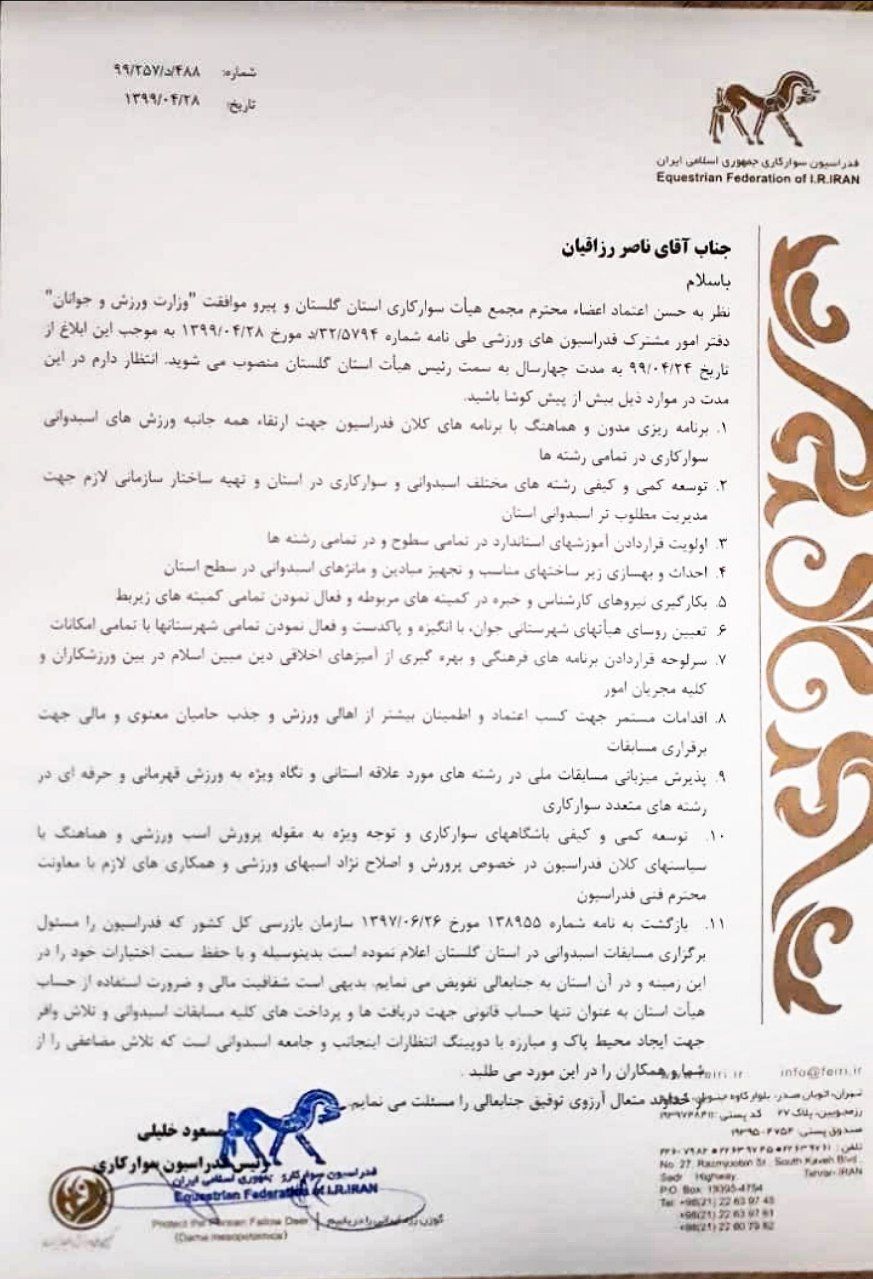 شماره: ۹۹/۲۵۷/د/۴۸۸
تاریخ: ۱۳۹۹/۰۴/۲۸
فدراسیون سوارکاری جمهوری اسلامی ایران
Equestrian Federation of I.R.IRAN
جناب آقای ناصر رزاقیان
باسلام
نظر به حسن اعتماد اعضاء محترم مجمع هیأت سوارکاری استان گلستان و پیرو موافقت "وزارت ورزش و جوانان"
دفتر امور مشترک فدراسیون های ورزشی طی نامه شماره ۳۲/۵۷۹۴/د مورخ ۱۳۹۹/۰۴/۲۸ به موجب این ابلاغ از
تاریخ ۹۹/۰۴/۲۴ به مدت چهارسال به سمت رئیس هیأت استان گلستان منصوب می شوید. انتظار دارم در این
مدت در موارد ذیل بیش از پیش کوشا باشید.
۱. برنامه ریزی مدون و هماهنگ با برنامه های کلان فدراسیون جهت ارتقاء همه جانبه ورزش های اسبدوانی
سوارکاری در تمامی رشته ها
۲. توسعه کمی و کیفی رشته های مختلف اسبدوانی و سوارکاری در استان و تهیه ساختار سازمانی لازم جهت
مدیریت مطلوب تر اسبدوانی استان
۳. اولویت قراردادن آموزشهای استاندارد در تمامی سطوح و در تمامی رشته ها
۴. احداث و بهسازی زیر ساختهای مناسب و تجهیز میادین و مانژهای اسبدوانی در سطح استان
۵. بکارگیری نیروهای کارشناس و خبره در کمیته های مربوطه و فعال نمودن تمامی کمیته های زیربط
۶. تعیین روسای هیأتهای شهرستانی جوان، با انگیزه و پاکدست و فعال نمودن تمامی شهرستانها با تمامی امکانات
۷. سرلوحه قراردادن برنامه های فرهنگی و بهره گیری از آمیزهای اخلاقی دین مبین اسلام در بین ورزشکاران و
کلیه مجریان امور
۸. اقدامات مستمر جهت کسب اعتماد و اطمینان بیشتر از اهالی ورزش و جذب حامیان معنوی و مالی جهت
برقراری مسابقات
۹. پذیرش میزبانی مسابقات ملی در رشته های مورد علاقه استانی و نگاه ویژه به ورزش قهرمانی و حرفه ای در
رشته های متعدد سوارکاری
۱۰. توسعه کمی و کیفی باشگاههای سوارکاری و توجه ویژه به مقوله پرورش اسب ورزشی و هماهنگ با
سیاستهای کلان فدراسیون در خصوص پرورش و اصلاح نژاد اسبهای ورزشی و همکاری های لازم با معاونت
محترم فنی فدراسیون
۱۱. بازگشت به نامه شماره ۱۳۸۹۵۵ مورخ ۱۳۹۷/۰۶/۲۶ سازمان بازرسی کل کشور که فدراسیون را مسئول
برگزاری مسابقات اسبدوانی در استان گلستان اعلام نموده است بدینوسیله و با حفظ سمت اختیارات خود را در
این زمینه و در آن استان به جنابعالی تفویض می نمایم. بدیهی است شفافیت مالی و ضرورت استفاده از حساب
هیأت استان به عنوان تنها حساب قانونی جهت دریافت ها و پرداخت های کلیه مسابقات اسبدوانی و تلاش وافر
جهت ایجاد محیط پاک و مبارزه با دوپینگ انتظارات اینجانب و جامعه اسبدوانی است که تلاش مضاعفی را از
شما و همکاران را در این مورد می طلبد .
از خداوند متعال آرزوی توفیق جنابعالی را مسئلت می نمایم.
info@feiri.ir
مسعود خلیلی
رئیس فدراسیون سوارکاری
فدراسیون سوارکاری جمهوری اسلامی ایران
Equestrian Federation of I.R.IRAN
گوزن زرد ایرانی را دریابیم | Protect the Persian Fallow Deer
(Dama mesopotamica)
تهران، اتوبان صدر، بلوار کاوه جنوبی،
رزمجویین، پلاک ۲۷ کد پستی:
صندوق پستی: ۴۷۵۴-۱۹۳۹۵
تلفن:
No. 27, Razmjooein St., South Kaveh Blvd.,
Sadr Highway, Tehran-IRAN
P.O. Box: 19395-4754
Tel: +98(21) 22 63 97 45
+98(21) 22 63 97 61
+98(21) 22 60 79 82